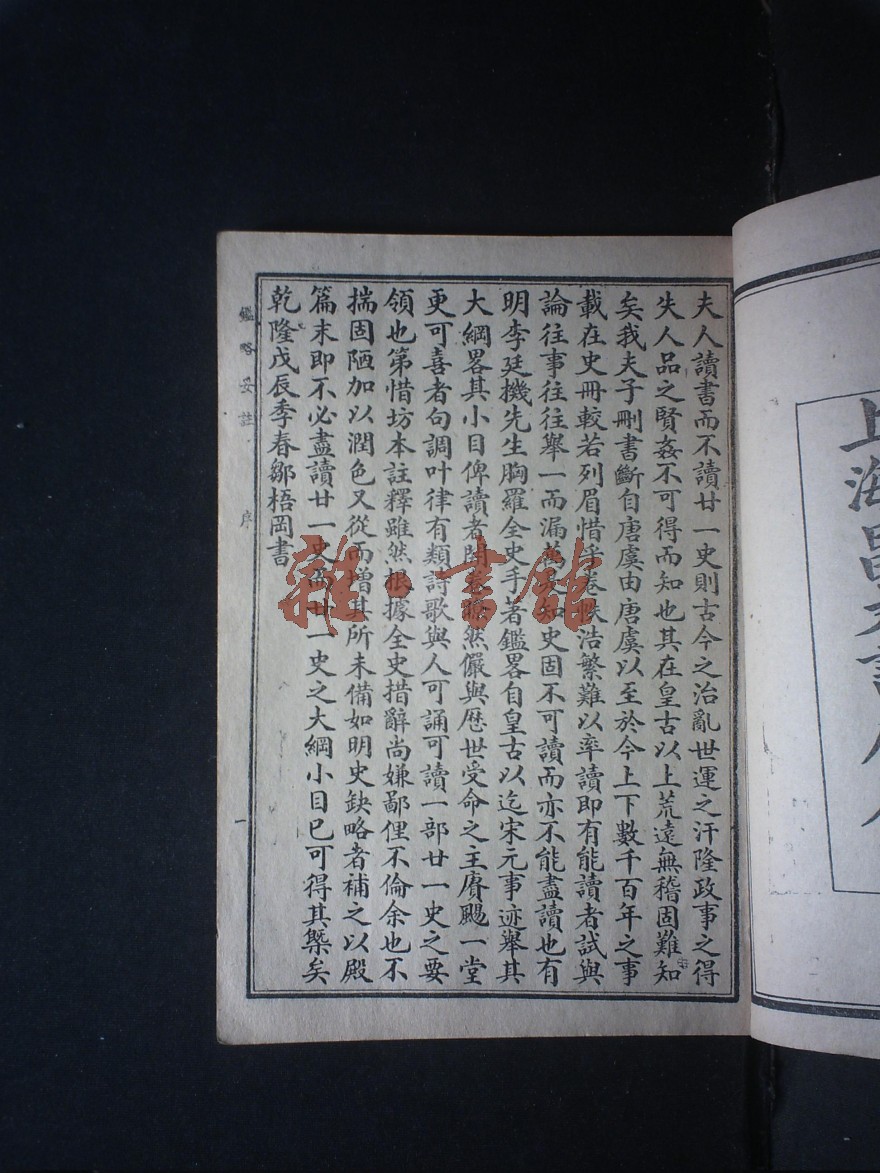 夫人讀書而不讀廿一史則古今之治亂世運之汙隆政事之得
失人品之賢姦不可得而知也其在皇古以上荒遠無稽固難知
矣我夫子刪書斷自唐虞由唐虞以至於今上下數千百年之事
載在史冊較若列眉惜乎卷帙浩繁難以率讀即有能讀者試與
論往事往往舉一而漏萬是知史固不可讀而亦不能盡讀也有
明李廷機先生胸羅全史手著鑑畧自皇古以迄宋元事迹舉其
大綱畧其小目俾讀者開卷瞭然儼與歷世受命之主賡颺一堂
更可喜者句調叶律有類詩歌與人可誦可讀一部廿一史之要
領也第惜坊本註釋雖然根據全史措辭尚嫌鄙俚不倫余也不
揣固陋加以潤色又從而增其所未備如明史缺略者補之以殿
篇末即不必盡讀廿一史而廿一史之大綱小目已可得其槩矣
乾隆戊辰季春鄒梧岡書
鑑略妥註 序 一
雜·書館
上海昌文書局